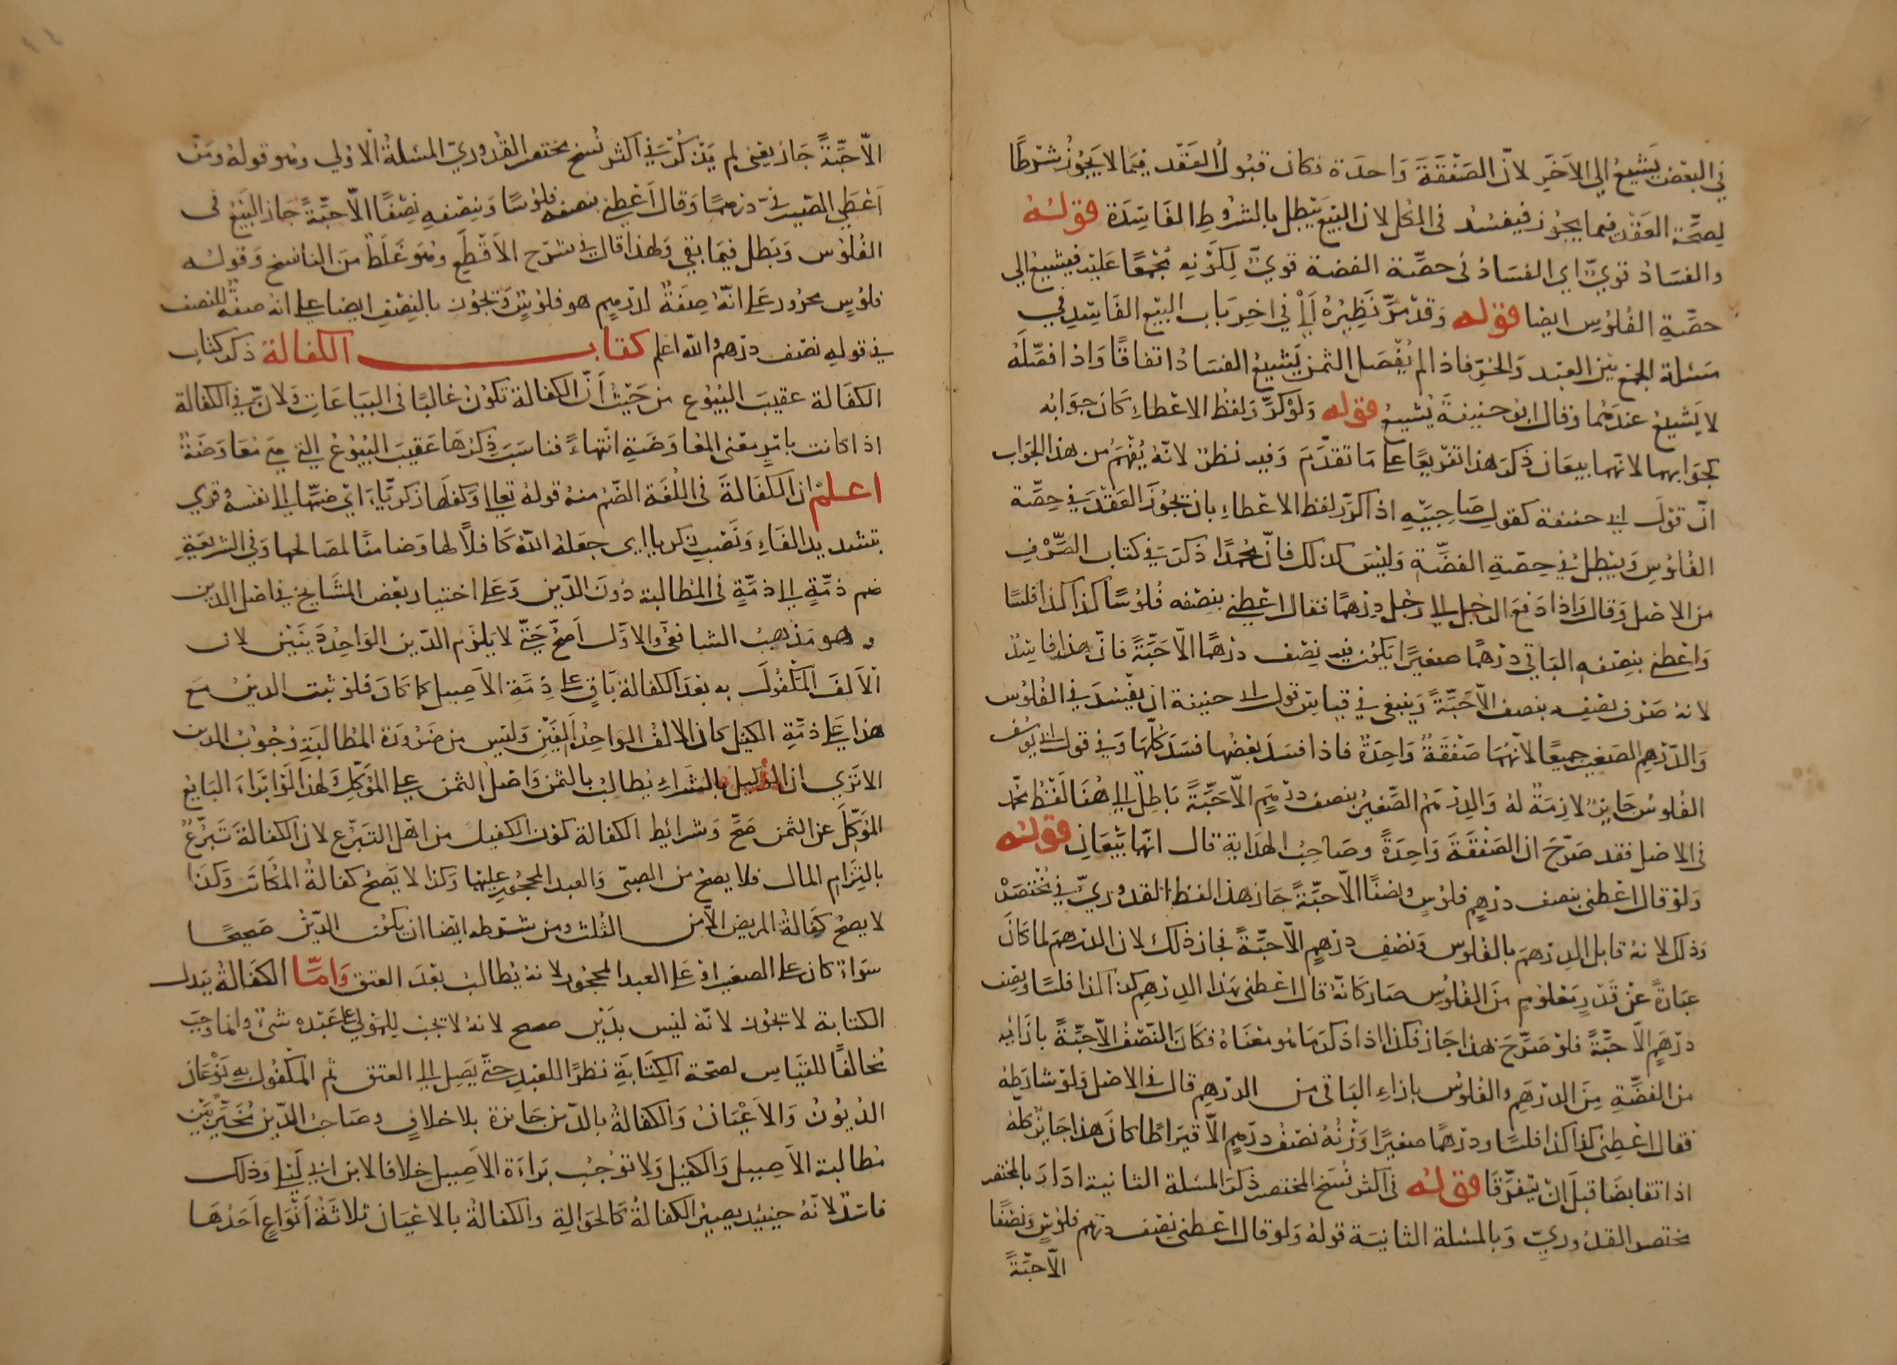 في البعض يَشيعُ الى الاَخَرِ لانّ الصَفقَةَ وَاحدَة فكان قبُولُ العَقد فيمَا لا يَجُوزُ شرْطًا
لصحّة العَقْد فيما يجوُز فيفسُد فى الكل لان البَيعَ يَبطل بالشرُوطِ الفَاسِدَة قوله
والفسَادُ قوىّ اى الفسَادُ فى حصّة الفضة قوىّ لِكَوْنه مُجْمعًا عَليْه فيشيعُ الى
حصّةِ الفُلوُسِ ايضا قوله وَقدْ مرّ نَظِيْرُهُ اَيْ في اخِر بَاب البيْع الفَاسِدِ في
مَسْئلة الجمع بَيْنَ العبْد وَالحُرّ فاذا لم يُفْصَل الثمنُ يَشيعُ الفسَادُ اتفاقًا وَاذا فصّلَهُ
لا يَشيعُ عندَهُما وقال ابو حنيفةَ يُشيعُ قوله وَلوْ كرّر لفظ الاعطاءِ كانَ جوَابه
كجوَابهما لانهما بيعَان ذَكرَ هذا تفريعًا على مَا تقدّمَ وفيه نظرٌ لانّهُ يُفْهَمُ من هذا الجوَاب
انّ قوْلَ ابى حنيفة كقولِ صَاحِبَيْهِ اذا كرّر لفظ الاعْطاءِ بان يجُوزَ العَقْدُ في حِصّة
الفُلوُسِ وَيَبْطلُ في حِصّةِ الفضّةِ وَليْسَ كذلك فانّ محمّدًا ذكرَ في كتاب الصّرْف
من الاصْل وَقال وَاذا دَفعَ الرّجل الى رَجُل درْهمًا فقال اعْطِني بنصْفه فُلوُسًا كذا كذا فلسًا
وَاعْطِني بنِصْفِهِ البَاقي درْهمًا صغيرًا يَكوُن فيه نِصْف درْهمًا الاّ حَبّةً فانّ هذا فاسِدٌ
لانهُ صَرْفُ نصْفِه بنصف الاّ حَبّةً وَيَنبغي في قيَاس قول ابى حنيفة ان يَفْسُدَ في الفُلوُس
وَالدّرْهمِ الصّغير جميعًا لانّهُما صَفْقَةٌ وَاحِدَةٌ فاذا فسَدَ بَعْضُها فسَدَ كلّهَا وَفي قول ابى يوُسُف
الفُلوسُ جَايزٌ لازِمَةٌ لهُ وَالدِرْهَمُ الصّغيرُ بنصف درْهَمٍ الاّ حَبّةً بَاطِلٌ الى هُنَا لَفْظُ محمّد
فى الاصْل فقد صَرّحَ ان الصَفْقَةَ وَاحِدَةٌ وصَاحِبُ الهدَاية قال انّهَا بَيْعَانِ قوله
وَلوْ قال اعْطنى بنصف درْهمٍ فلوُسٍ ونصفًا الاّ حبّةً جَاز هذا لفظ القدوُريّ في مُخْتَصَرْ
وَذلك لانهُ قابل الدرْهمَ بالفلوُس وَنصْف درْهمٍ الاّ حبّةً فجاز ذلك لان الدرْهمَ لما كانَ
عبَارةً عنْ قدْرٍ مَعلوُمٍ منَ الفلوُسِ صَار كانّهُ قال اعْطنى بهَذا الدرْهمِ كذا كذا فلسًا ونصْف
درْهَمٍ الاّ حبّةً فلوْ صَرّحَ بهذا جَاز فكذا اذا ذكرَ مَا هُو مَعْناهُ فكانَ النّصْفُ الاّ حبّةً بازَائهِ
من الفضّةِ مِنَ الدرْهَمِ والفلوُس بازاءِ البَاقى من الدرْهم قال فى الاصْل وَلوْ شارَطهُ
فقال اعْطِنى كذا كذا فلسًا ودرْهما صغيرًا وَزْنُهُ نصْفُ درْهمٍ الاّ قيرَاطًا كانَ هذا جَايزًا كلّهُ
اذا تقابضَا قبلَ انْ يَتفرّقَا قوله فى اكثر نُسَخ المختصر ذكَرَ المسْئلة الثانية ارَادَ بالمختصر
مختصر القدوُريِّ وَبالمسْئلة الثانيَة قولهُ وَلو قال اعْطنى نصْف درْهمٍ فلوُسٍ وَنصْفًا
الاّ حبّةً
الاّ حَبّةً جَازَ يعْنى لم يَذكُرْ في اكثر نُسخ مختصر القُدوُريّ المسْئلةُ الاوْلى وهُو قولهُ ومَن
اعْطَى الصَيْرفيّ درْهمًا وَقال اعْطِنى بنصْفِه فلوُسًا وَبنِصْفهِ نِصْفًا الاّ حَبّةً جَاز البَيْعُ فى
الفُلوُس وَبَطلَ فيمَا بَقِى وَلهذا قال في شرْح الاَقْطَعِ وهُوَ غَلَطٌ منَ الناسِخ وَقوْله
فلوُسٍ مجرُور عَلى انّهُ صِفَةٌ لدرْهَمٍ هو فلوُسٌ وَتجُوُز بالنصْفِ ايضا على انهُ صفةٌ للنصف
في قوله نصْف درْهمٍ والله اعلم كتاب الكفالة ذكَر كتاب
الكفَالة عقيبَ البُيُوعِ من حَيْثُ انّ الكفالة تكوُنُ غالبًا فى البيَاعَاتِ وَلانّ في الكفالة
اذا كانت بامْرٍ معْنى المعَاوضَةِ انتهاءً فناسَبَ ذِكرُهَا عَقيبَ البُيُوعِ التي هيَ مُعَاوَضَةٌ
اعلم ان الكفَالةَ فى اللغَة الضّم منهُ قوله تعالى وَكفلَهَا زكريّاءَ اى ضمّها الى نفسهُ وَقرى
بتشديد الفَاءِ وَنَصْبِ زكريا اى جعَلهُ اللهُ كافلاً لها وَضامنًا لمصَالحها وَفي الشريعَةِ
ضم ذمّةٍ الى ذمّةٍ فى المطالبة دُونَ الدّين وَعلى اختيار بعْض المشايخ في اصْل الدين
وهو مَذهب الشافعى والاوّل اصحّ حَتّى لا يَلزم الدّين الوَاحِدُ دَينَيْن لان
الاَلفَ المَكفُول به بعْدَ الكفالة بَاقٍ عَلى ذِمّةِ الاَصِيل كما كانَ فلوْ ثبت الدينُ مع
هذا عَلى ذمّةِ الكفيْل كان الالف الوَاحِدُ اَلفَيْنِ وَليْس من ضَرُورَة المُطالبَةِ وُجوُبُ الدين
الا تَرى ان الوكيل بالشرَاءِ يُطالبُ بالثمن وَاصْلُ الثمن على المُوَكّل وَلهذا لَوْ ابْرَاءَ البَايعُ
المُوَكّلَ عن الثمن صَحّ وَشرائط الكفالة كوْن الكفيل من اهْل التبرّع لان الكفالةَ تَبرّعٌ
بالتِزَام المال فلا يصحّ من الصبىّ وَالعبد المحجُور عليْها وَكذا لا يَصحّ كفالةُ المكاتَب وَكذا
لا يصحّ كفالةُ المريض الاّ من الثُلث ومن شرْطه ايضا ان يكوُن الدّيْن صَحيحًا
سوَاءٌ كان على الصغير اوْ عَلى العبد المحجُور لانهُ يُطالبُ بَعْدَ العتق وَامّا الكفَالةُ ببَدل
الكتابة لا تجُوُز لانّهُ ليْس بدَيْن صحيح لانهُ لا تجبُ لِلمَوْلى على عَبْده شىْءٌ وانما وَجبَ
مُخالفًا للقيَاس لصحّة الكِتَابَةِ نظرًا للعَبْد حتّى يَصِل الى العتق ثم المكفُولُ به نَوْعَان
الدُيوُنُ وَالاَعْيَانُ وَالكفالةُ بالدّين جَايزة بلا خلافٍ وصَاحبُ الدّين مُخيّرٌ بَيْن
مُطالبة الاَصِيل وَالكفيْل وَلا توُجُبُ بَراءَة الاَصِيل خلافا لابن ابى لَيْلى وَذلك
فاسدٌ لانّهُ حينئِذٍ يصيرُ الكفالةُ كالحوَالةِ والكفالةُ بالاعْيَان ثلاثَةُ اَنْوَاعٍ اَحَدُهَا